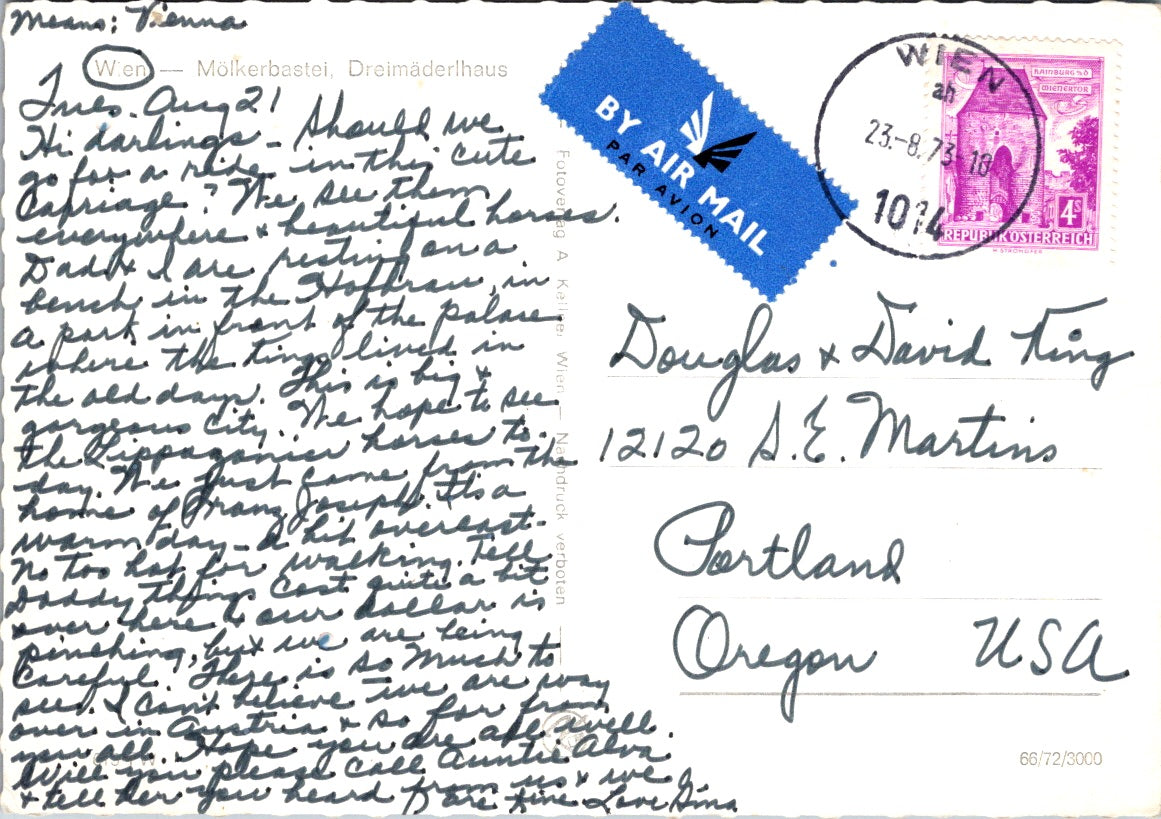 Means: Vienna
Wien — Mölkerbastei, Dreimäderlhaus
Tues. Aug 21
Hi darlings - Should we
go for a ride in this cute
carriage? We see them
everywhere & beautiful horses.
Dad & I are resting on a
bench in the Hofbrau, in
a park in front of the palase
where the kings lived in
the old days. This is big &
gorgeous city. We hope to see
the horses to-
day. We just came from the
home of Franz Joseph. Its a
warm day - a bit overcast -
no too hot for walking. Tell
Daddy things cost quite a bit
over here & our dollar is
pinching, but we are being
careful. There is so much to
see. I can't believe we are way
over in Austria & so far from
you all. Hope you are all well.
Will you please call Auntie Alva
& tell her you heard from us & we
are fine Love
Fotoverlag A. Wien — Nachdruck verboten
BY AIR MAIL
PAR AVION
WIEN
ah
23.-8.73-18
1014
HAINBURG a/D
WIENERTOR
4S
REPUBLIK ÖSTERREICH
Douglas & David King
12120 S.E. Martins
Portland
Oregon USA
66/72/3000